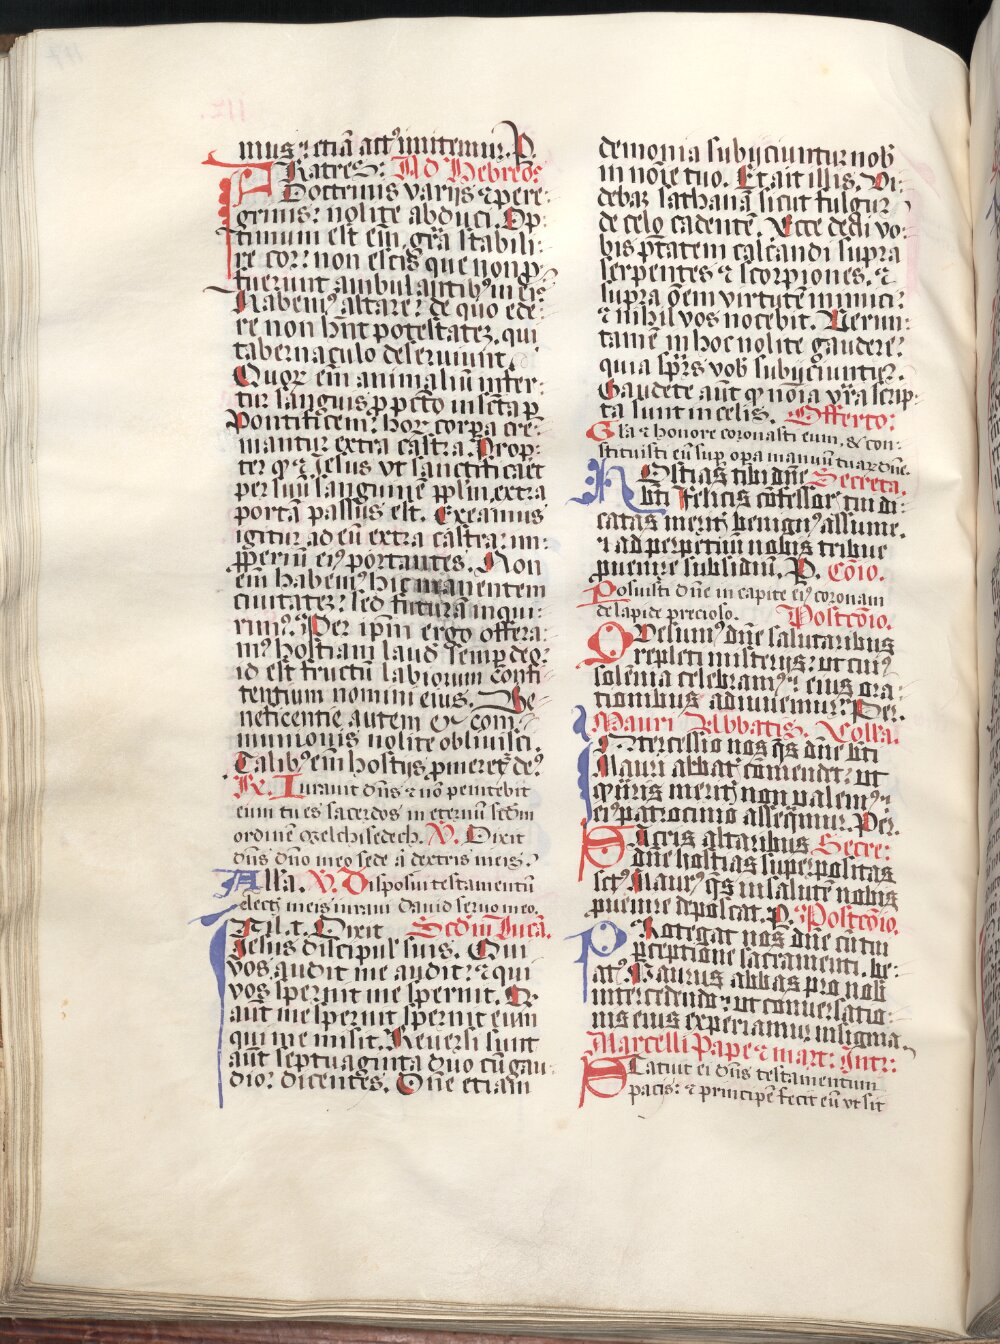 mus ⁊ etiã actꝰ imitemur. P.
FRatres: Ad Hebreos.
Doctrinis varijs ⁊ pere-
grinis: nolite abduci. Op-
timum est em̃ gr̃a stabili-
re cor: non escis que non ꝓ-
fuerunt ambulantibꝰ in eis
Habemꝰ altare: de quo ede-
re non hñt potestatez, qui
tabernaculo deseruiunt.
Quoꝝ em̃ animaliũ infer-
tur sanguis ꝓ pctõ in sctã ꝑ
Pontificem: hoꝝ corpa cre-
mantur extra castra. Prop-
ter qḋ ⁊ Jesus vt sanctificaret
per suũ sanguinẽ pplm̃ extra
portã passus est. Exeamus
igitur ad eũ extra castra: im-
ꝓperiũ eiꝰ portantes. Non
em̃ habemꝰ hic manentem
ciuitatez: sed futurã inqui-
rimꝰ. Per ipm̃ ergo offera-
mꝰ hostiam laud̃ semꝑ deo:
id est fructũ labiorum confi-
tentium nomini eius. Be-
neficentie autem et com-
munionis nolite obliuisci.
Talibꝰ em̃ hostijs ꝓmeretᷣ deꝰ
℟. Iurauit dñs ⁊ nõ penitebit
eum tu es sacerdos in eternũ sc̃dm
ordinẽ Melchisedech. ℣. Dixit
dñs dño meo sede a dextris meis.
Alla. ℣. Disposui testamentũ
electꝭ meis iuraui Dauid seruo meo.
In il. t. Dixit Sc̃dm Lucã.
Jesus discipul' suis. Qui
vos audit me audit: ⁊ qui
vos spernit me spernit. Q
aut me spernit spernit eum
qui me misit. Reuersi sunt
aũt septuaginta duo cũ gau-
dio: dicentes. Dñe etiam
demonia subijciuntur nob̃
in noĩe tuo. Et ait illis. Vi-
debaꝫ sathanã sicut fulgur
de celo cadentẽ. Ecce dedi vo-
bis ptãtem calcandi supra
serpentes ⁊ scorpiones, ⁊
supra õem virtutẽ inimici:
⁊ nihil vos nocebit. Verun-
tamẽ in hoc nolite gaudere:
quia spũs vob̃ subijciuntur.
Gaudete aũt qḋ noĩa vr̃a scrip-
ta sunt in celis. Offerto:
Gl̃a ⁊ honore coronasti eum, & con-
stituisti eũ suꝑ opa manuũ tuaꝝ dñe.
HOstias tibi dñe Secreta.
bti Felicis cõfessor' tui di-
catas meritꝭ benignꝰ assume.
⁊ ad perpetuũ nobis tribue
ꝓuenire subsidiũ. P. Cõio.
Posuisti dñe in capite eiꝰ coronam
de lapide precioso. Postcõio.
QVesumꝰ dñe salutaribus
repleti misterijs: vt cuiꝰ
solẽnia celebramꝰ: eius ora-
tionibus adiuuemur. Per.
Mauri Abbatis. Colla.
INtercessio nos qs dñe bti
Mauri abbatꝭ cõmendet: vt
qd̃ nr̃is meritꝭ non valemꝰ:
eiꝰ patrocinio asseqmur. Per.
SAcris altaribus Secre:
dñe hostias superpositas
sctꝰ Maurꝰ qs in salutẽ nobis
ꝓuenire deposcat. P. Postcõio.
PRotegat nos dñe cũ tui
ꝑceptione sacramenti, be-
atꝰ Maurus abbas pro nob̃
intercedendo: vt conuersatio-
nis eius experiamur insignia.
Marcelli Pape ⁊ mart: Intr:
STatuit ei dñs testamentum
pacis: ⁊ principẽ fecit eũ vt sit